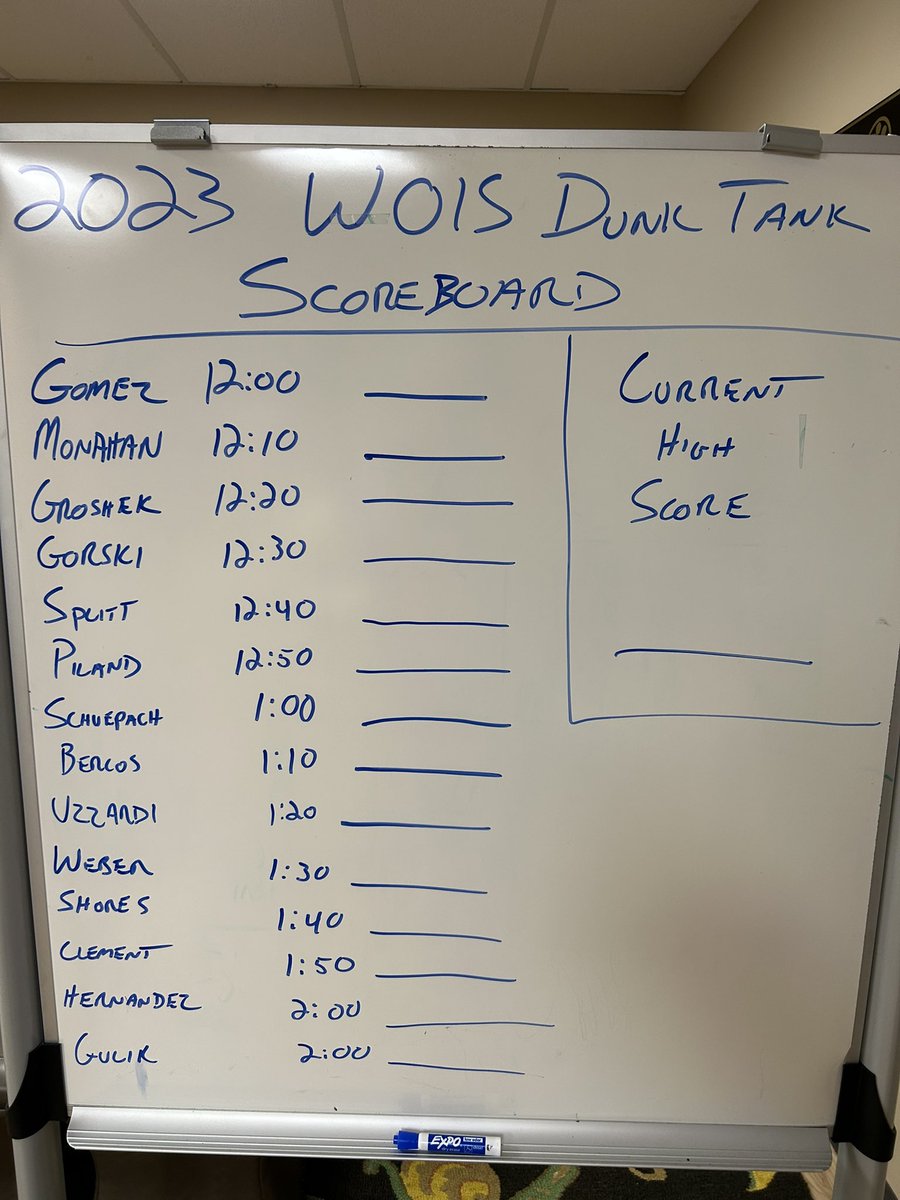 2023 WOIS DUNK TANK
SCOREBOARD
GOMEZ 12:00
MONAHAN 12:10
GROSHEK 12:20
GORSKI 12:30
SPLITT 12:40
PILAND 12:50
SCHUEPACH 1:00
BERCOS 1:10
UZZARDI 1:20
WEBER 1:30
SHORES 1:40
CLEMENT 1:50
HERNANDEZ 2:00
GULIK 2:00
CURRENT
HIGH
SCORE
EXPO